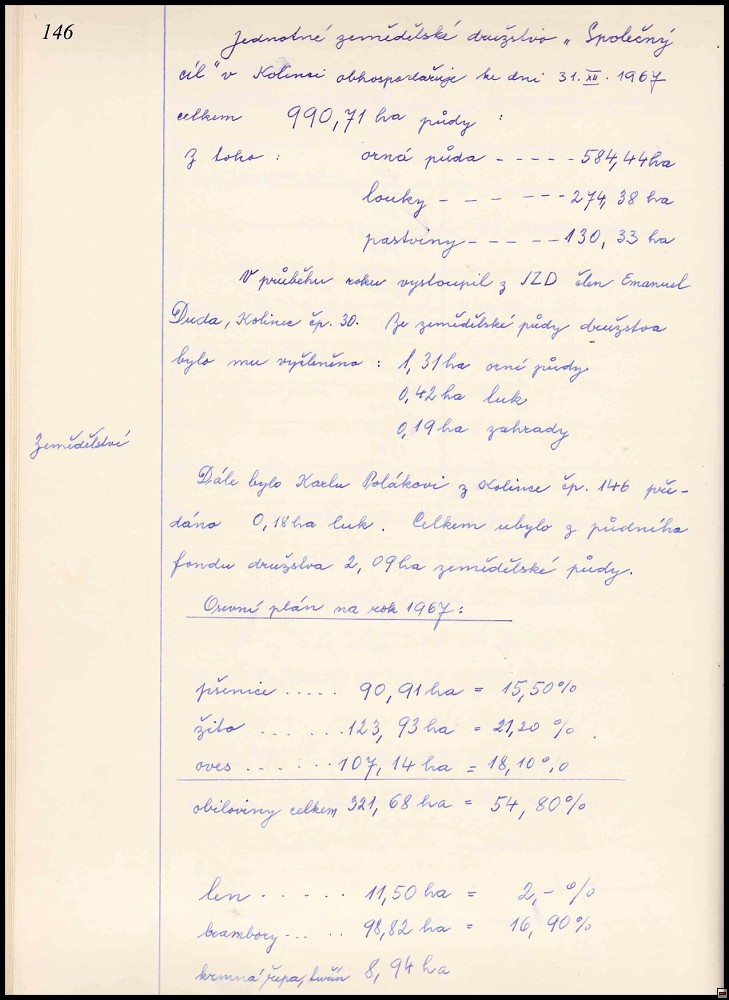 146
Jednotné zemědělské družstvo „Společný
cíl" v Kolinci obhospodařuje ke dni 31. XII. 1967
celkem 990,71 ha půdy :
Z toho : orná půda - - - - - 584,44 ha
louky - - - - - - 274,38 ha
pastviny - - - - - 130,33 ha
V průběhu roku vystoupil z JZD člen Emanuel
Duda, Kolinec čp. 30. Ze zemědělské půdy družstva
bylo mu vyčleněno : 1,31 ha orné půdy
0,42 ha luk
0,19 ha zahrady
Zemědělství
Dále bylo Karlu Polákovi z Kolince čp. 146 pře-
dáno 0,18 ha luk. Celkem ubylo z půdního
fondu družstva 2,09 ha zemědělské půdy.
Osevní plán na rok 1967 :
pšenice ..... 90,91 ha = 15,50 %
žito ...... 123,93 ha = 21,20 %
oves ...... 107,14 ha = 18,10 %
obiloviny celkem 321,68 ha = 54,80 %
len ..... 11,50 ha = 2,- %
brambory ..... 98,82 ha = 16,90 %
krmná řepa, tuřín 8,94 ha